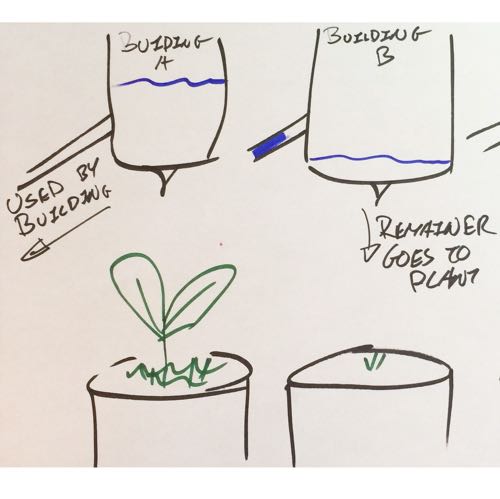 BUILDING
A
BUILDING
B
USED BY
BUILDING
REMAINER
GOES TO
PLANT